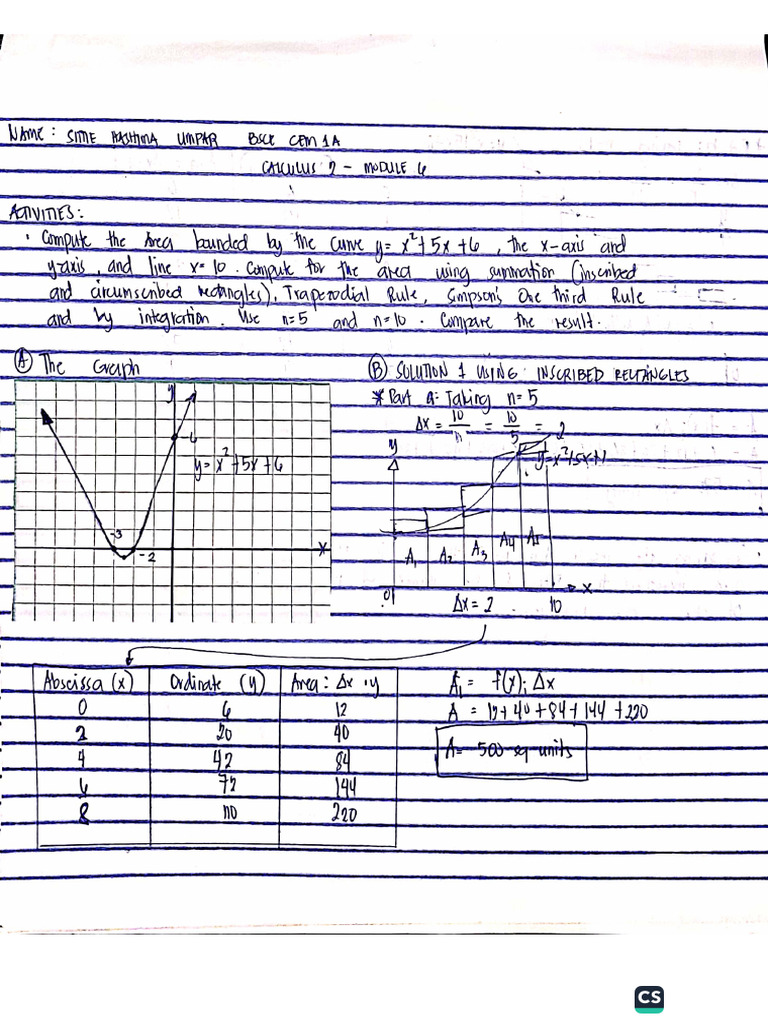 NAME: SITIE UMPAR BSCE CEM 1A
CALCULUS 2 - MODULE 6
ACTIVITIES:
• Compute the Area bounded by the curve y = x² + 5x + 6, the x-axis and
y-axis, and line x = 10. Compute for the area using summation (inscribed
and circumscribed rectangles), Traperodial Rule, Simpson's One third Rule
and by integration. Use n=5 and n=10. Compare the result.
Ⓐ The Graph
y
6
y = x² + 5x + 6
-3
-2
x
Ⓑ SOLUTION 1 USING INSCRIBED RECTANGLES
* Part a: Taking n = 5
Δx = 10/n = 10/5 = 2
y
A₁ A₂ A₃ A4 A5
0
x
Δx = 2
10
Abscissa (x) Ordinate (y) Area: Δx · y
0 6 12
2 20 40
4 42 84
6 72 144
8 110 220
A₁ = f(x)ᵢ Δx
A = 12 + 40 + 84 + 144 + 220
A = 500 sq units
CS